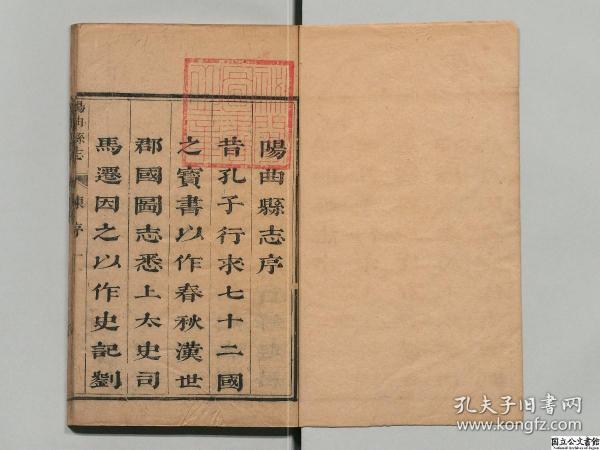 陽曲縣志序
昔孔子行求七十二國
之寶書以作春秋漢世
郡國圖志悉上太史司
馬遷因之以作史記劉
陽曲縣志 陳序 一
孔夫子旧书网
www.kongfz.com
国立公文書館
National Archives of Japan